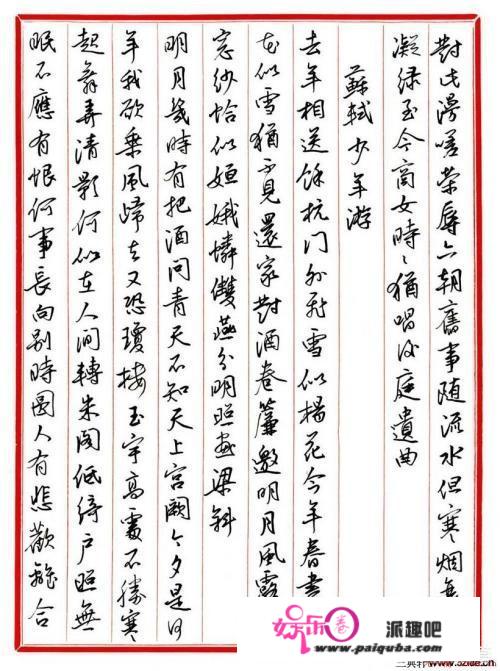 對此漫嗟榮辱六朝舊事随流水但寒烟
凝绿至今商女時々猶唱後庭遺曲
蘇軾少年游
去年相送馀杭门外飛雪似楊花今年春盡
花似雪猶不見還家對酒卷簾邀明月風露
窓纱恰似姮娥憐雙燕分明照画梁斜
明月幾時有把酒問青天不知天上宫闕今夕是何
年我欲乗風归去又恐瓊楼玉宇高處不勝寒
起舞弄清影何似在人间轉朱阁低绮户照無
眠不應有恨何事長向别時圆人有悲歡離合
娱乐卷
派趣吧
www.paiquba.com